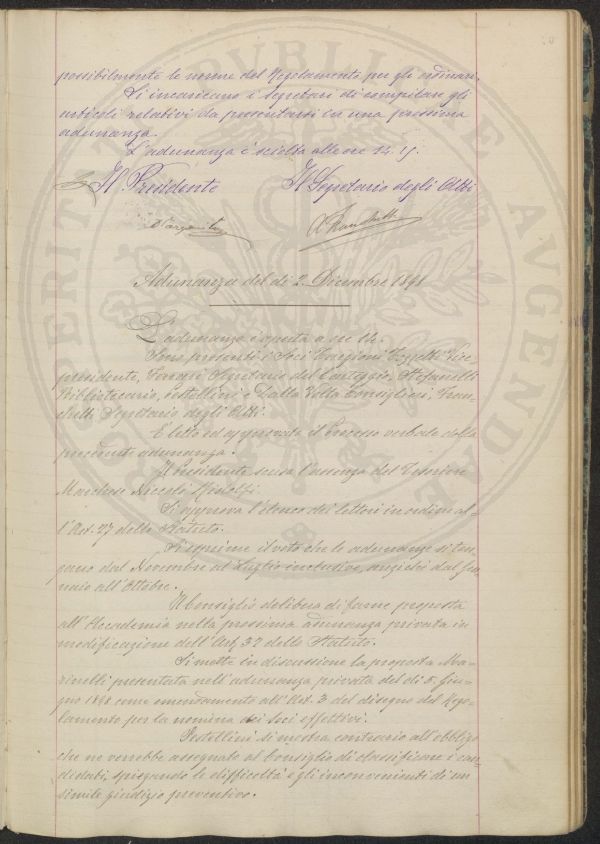 possibilmente le norme del Regolamento per gli ordinari.
Si incaricano i Segretari di compilare gli
articoli relativi da presentarsi in una prossima
adunanza.
L'adunanza è sciolta alle ore 14.15.
Il Presidente Il Segretario degli Atti
Adunanza del dì 2 Dicembre 1898
L'adunanza è aperta a ore 14.
Sono presenti i Soci Targioni Tozzetti Vice
presidente, Ferrari Segretario del Carteggio, Stefanelli
Bibliotecario, Pestellini e Dalla Volta Consiglieri, Fran
chetti Segretario degli Atti.
È letto ed approvato il Processo verbale della
precedente adunanza.
Il Presidente scusa l'assenza del Tesoriere
Marchese Niccolò Ridolfi.
Si approva l'elenco dei lettori in ordine al-
l'Art. 27 dello Statuto.
Si esprime il voto che le adunanze si ten
gano dal Novembre al Luglio inclusive, anziché dal Gen
naio all'Ottobre.
Il Consiglio delibera di farne proposta
all'Accademia nella prossima adunanza privata in
modificazione dell'Art. 37 dello Statuto.
Si mette in discussione la proposta Ma-
rinelli presentata nell'adunanza privata del dì 5 Giu-
gno 1898 come emendamento all'Art. 3 del disegno del Rego-
lamento per la nomina dei Soci effettivi.
Pestellini si mostra contrario all'obbligo
che ne verrebbe assegnato al Consiglio di classificare i can-
didati, spiegando le difficoltà e gli inconvenienti di un
simile giudizio preventivo.
PROSPERITATI PVBLICAE AVGENDAE